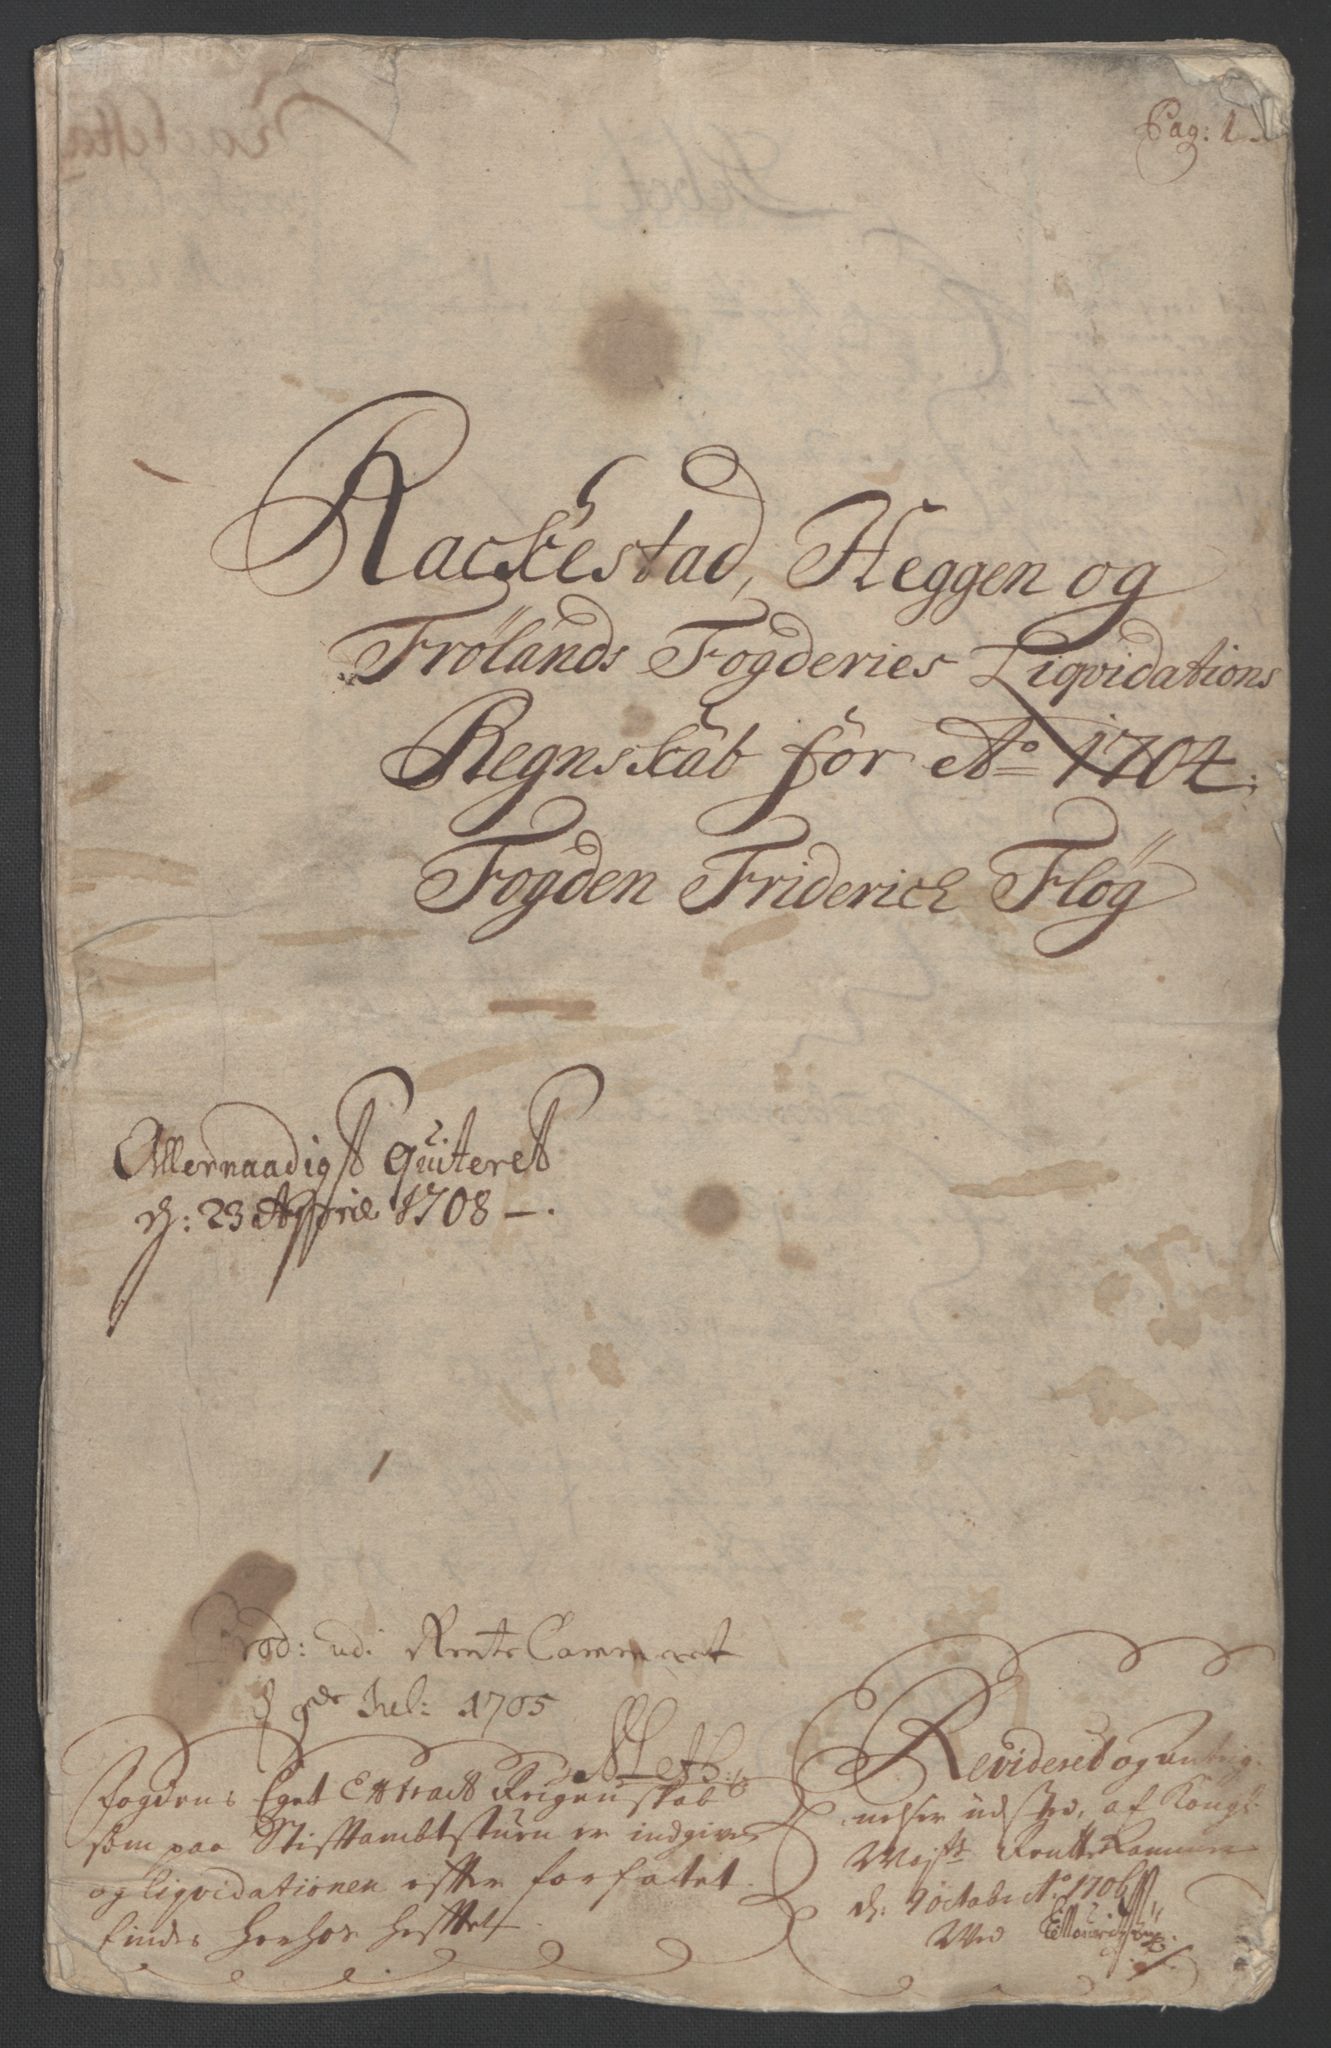 Pag: 1
Rackestad, Heggen og
Frölands Fogderies Liqvidations
Regnskab for Ao 1704.
Fogden Friderich Flög
Allernaadigst Quiteret
d: 23 April 1708
Prod: udi Rente Cammeret
d 9de Jul: 1705
Fogdens Eget Extract Reigenskab
som paa Stifftambtstuen er indgivet
og liqvidationen effter forfattet
findes herhos hefftet
Revideret og anteig-
nelser üdsted, af Kongl:
Mayts Rentte Kammer
d: 9 octobr Ao 1706
Ved